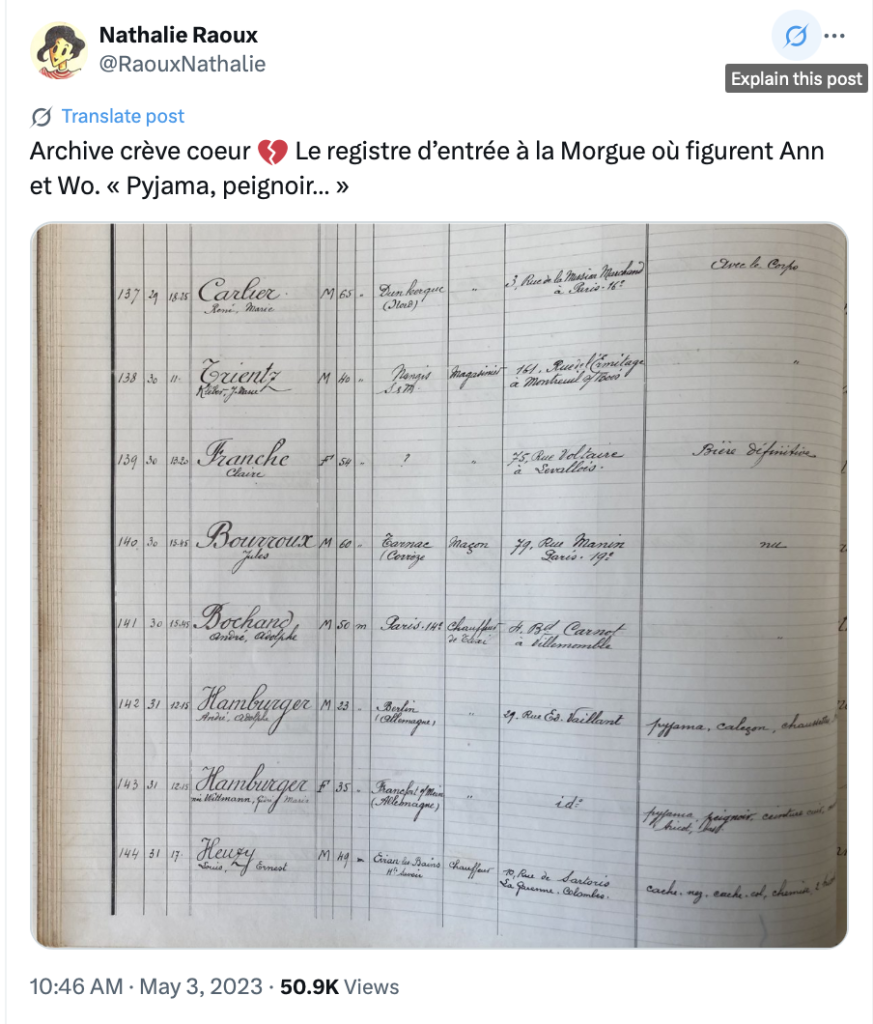 Nathalie Raoux
@RaouxNathalie
Explain this post
Translate post
Archive crève coeur 💔 Le registre d’entrée à la Morgue où figurent Ann
et Wo. « Pyjama, peignoir... »
137 29 18.25 Carlier M 65 " Dunkerque " 3, Rue de la Marine Marchand Avec le Corps
René, Marie (Nord) à Paris. 16e
138 30 11. Trientz M 40 " Nangis Magasinier 161. Rue de l'Ermitage "
S & M à Montreuil s/ Bois
139 30 13.20 Franche F 54 " ? " 75, Rue Voltaire Bière définitive
Claire à Levallois.
140 30 15.45 Bourroux M 60 " Tarnac Maçon 79, Rue Manin nu
Jules (Corrèze Paris. 19e
141 30 15.45 Bochand M 50 m Paris. 14e Chauffeur 4. Bd Carnot "
André, Adolphe de Taxi à Villemomble
142 31 12.15 Hamburger M 23 " Berlin " 29. Rue Ed. Vaillant pyjama, caleçon, chaussettes
André, Adolphe (Allemagne)
143 31 12.15 Hamburger F 35 " Francfort s/ Mein " id: pyjama, peignoir, ceinture
née Wittmann, Marie (Allemagne) tricot,
144 31 17. Heuzy M 49 Evian les Bains Chauffeur 10, Rue de Sartoris cache. nez, cache. col, chemise
Louis, Ernest Hte Savoie La Garenne. Colombes.
10:46 AM · May 3, 2023 · 50.9K Views